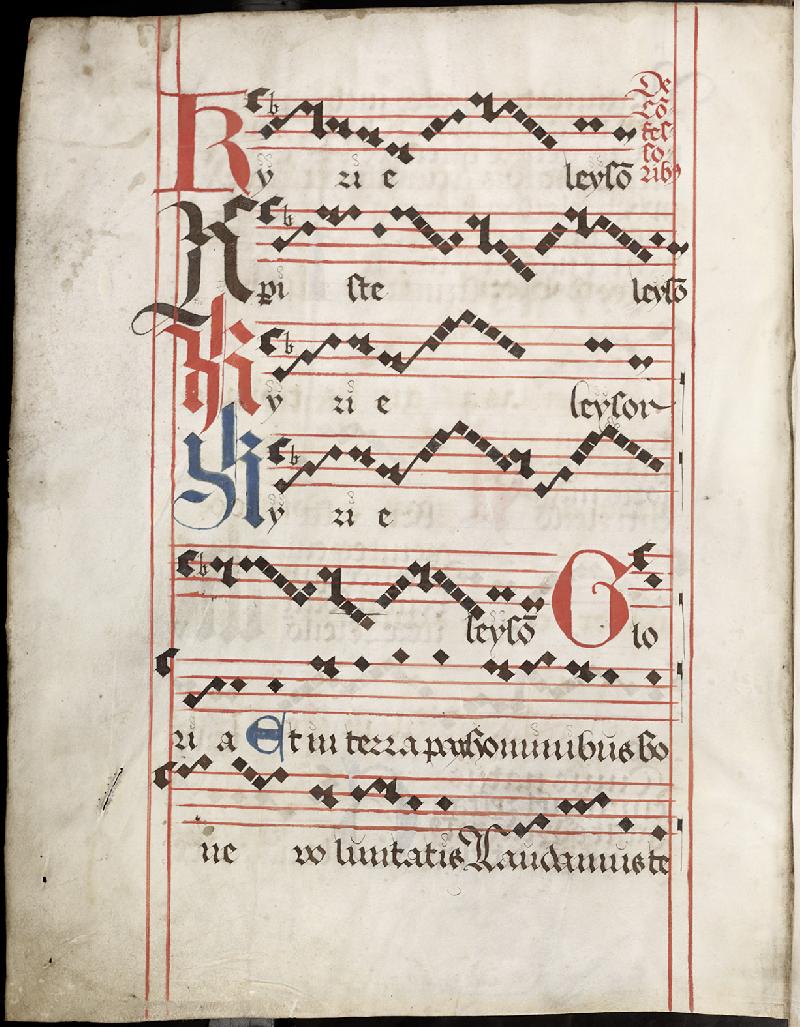 De
cō
fes
so
ribꝰ
Ky ri e leysō
Xpi ste leysō
Ky ri e leyson
Ky ri e
leysō Glo
ri a Et in terra pax hominibus bo
ne vo luntatis Laudamus te